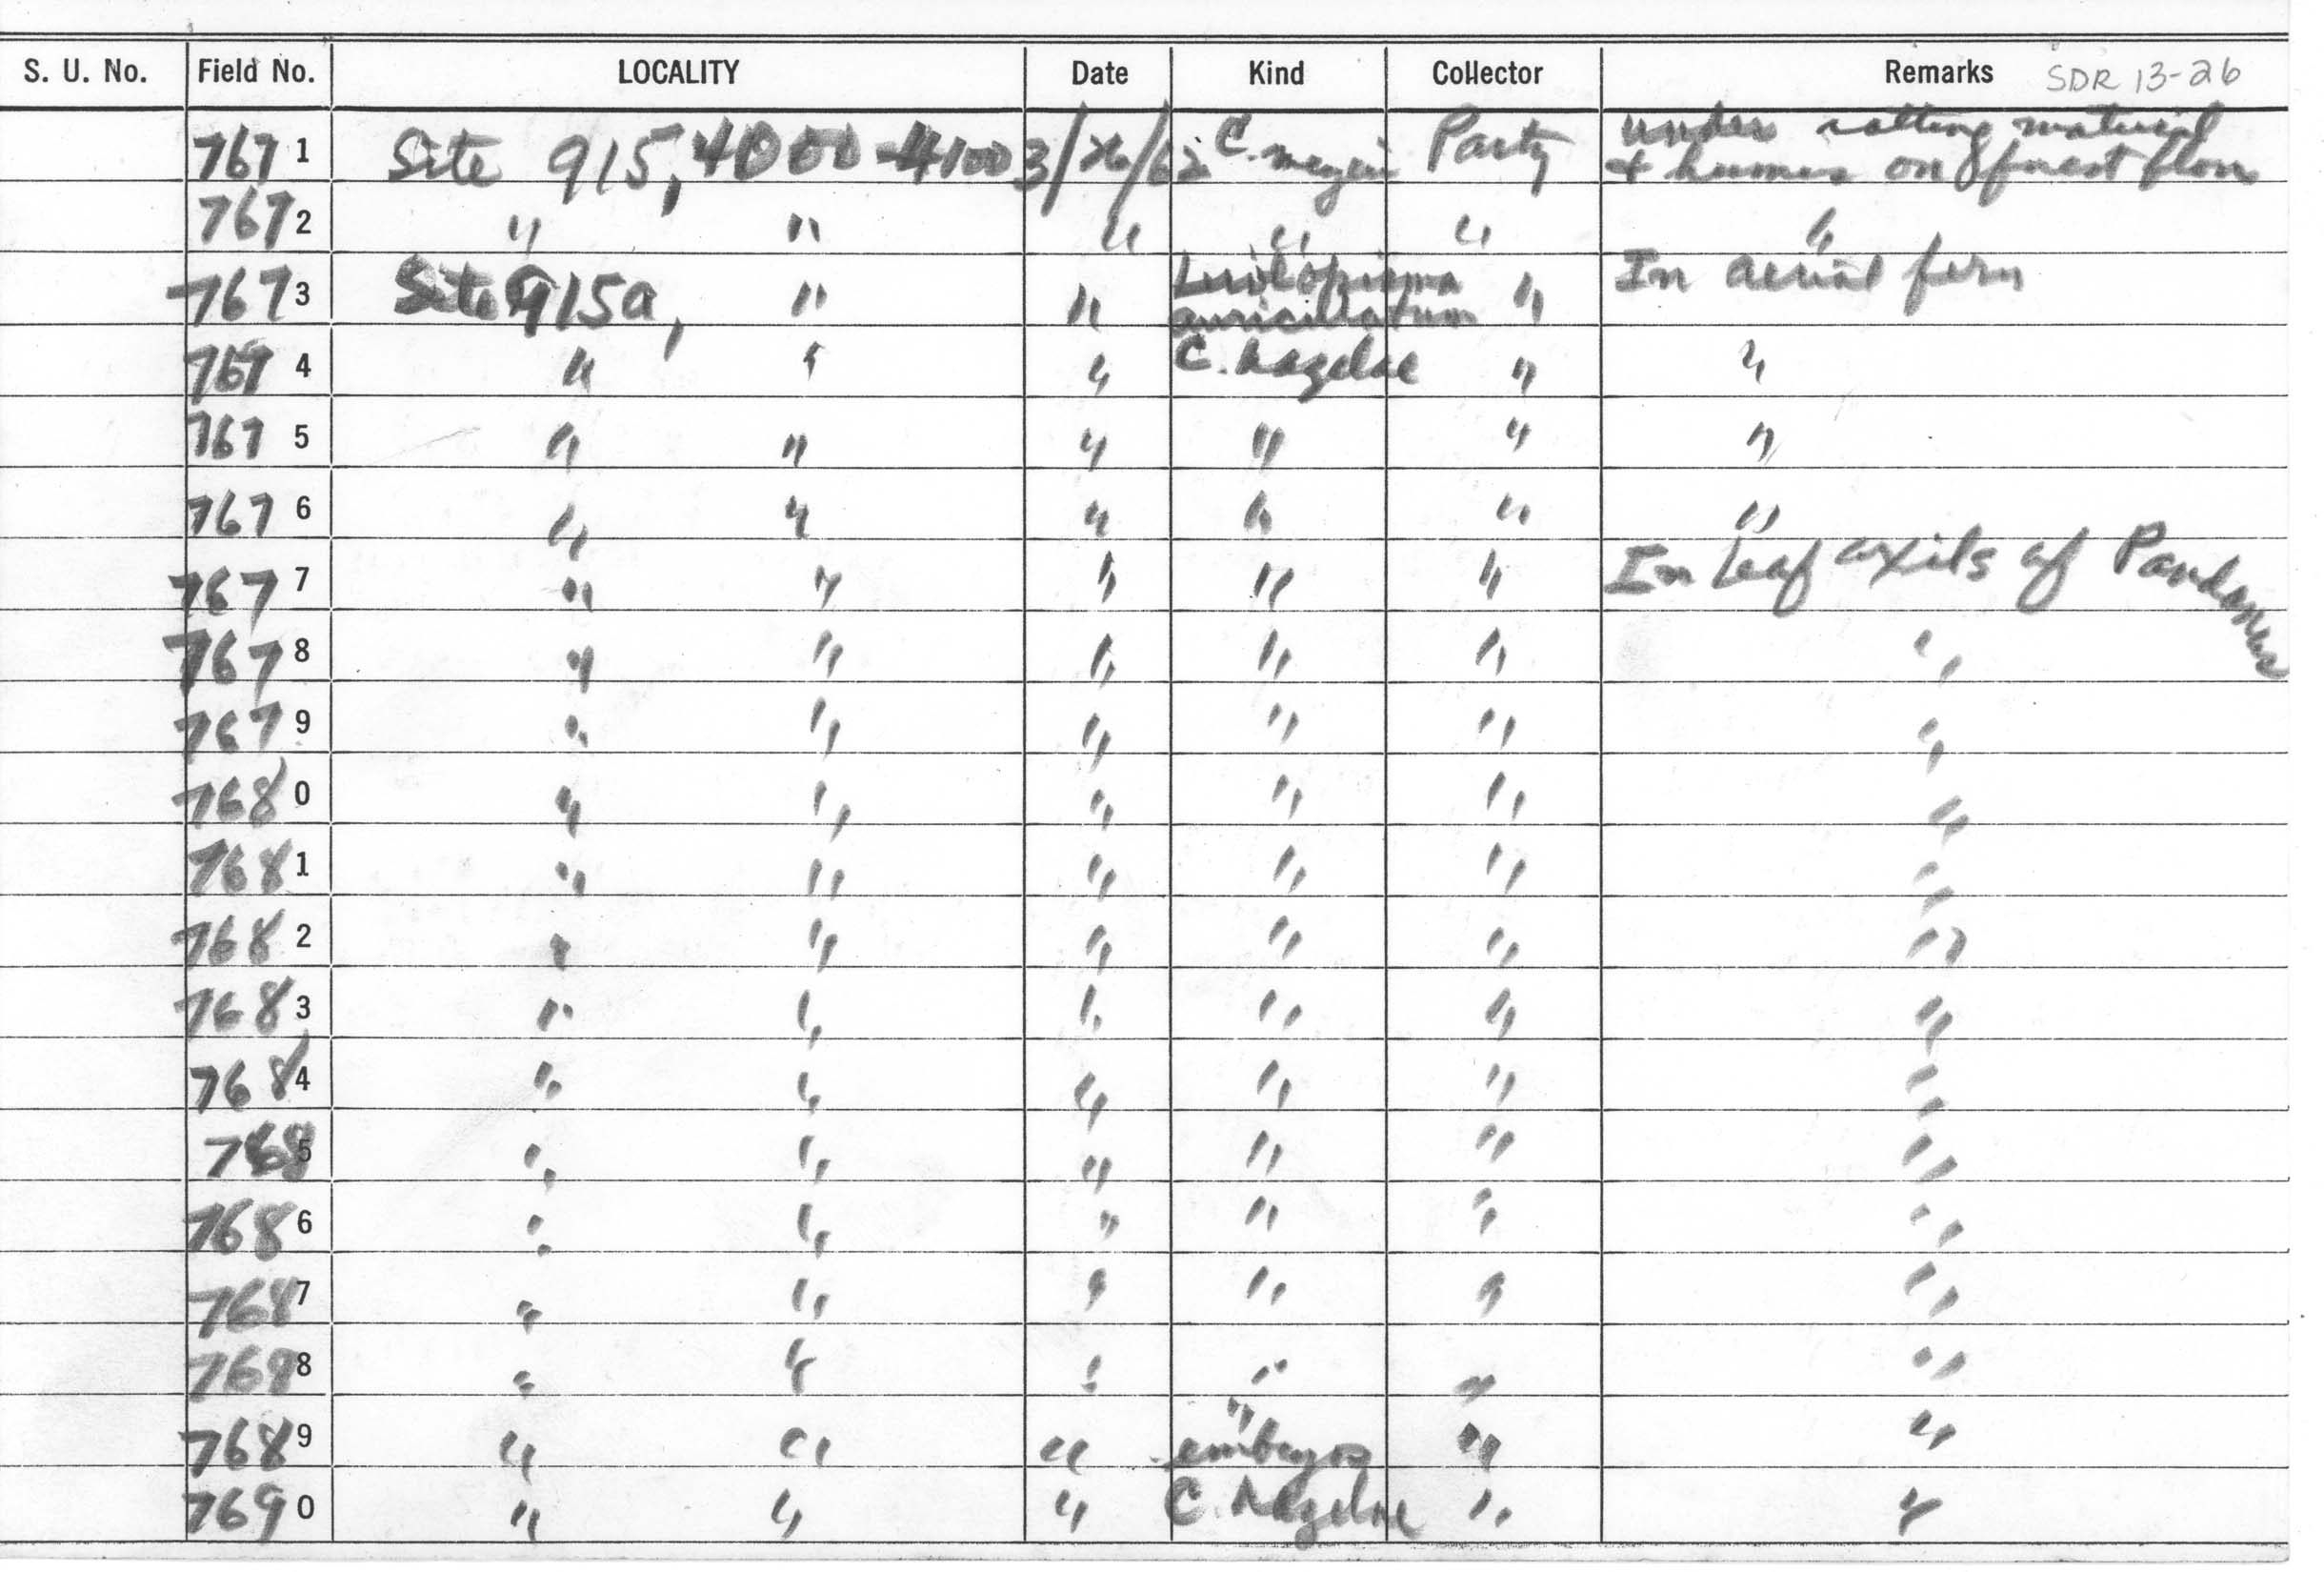 S. U. No. Field No. LOCALITY Date Kind Collector Remarks SDR 13-26
7671 Site 915, 4000-4100 3/26/62 C. meyeri Party under rotting material
& humus on forest floor
7672 " " " " " "
7673 Site 915a, " " Luilopisma auriculatum " In aerial fern
7674 " " " C. hazelae " "
7675 " " " " " "
7676 " " " " " "
7677 " " " " " In leaf axils of Pandanus
7678 " " " " " "
7679 " " " " " "
7680 " " " " " "
7681 " " " " " "
7682 " " " " " "
7683 " " " " " "
7684 " " " " " "
7685 " " " " " "
7686 " " " " " "
7687 " " " " " "
7688 " " " " " "
7689 " " " " embryos " "
7690 " " " C. hazelae " "